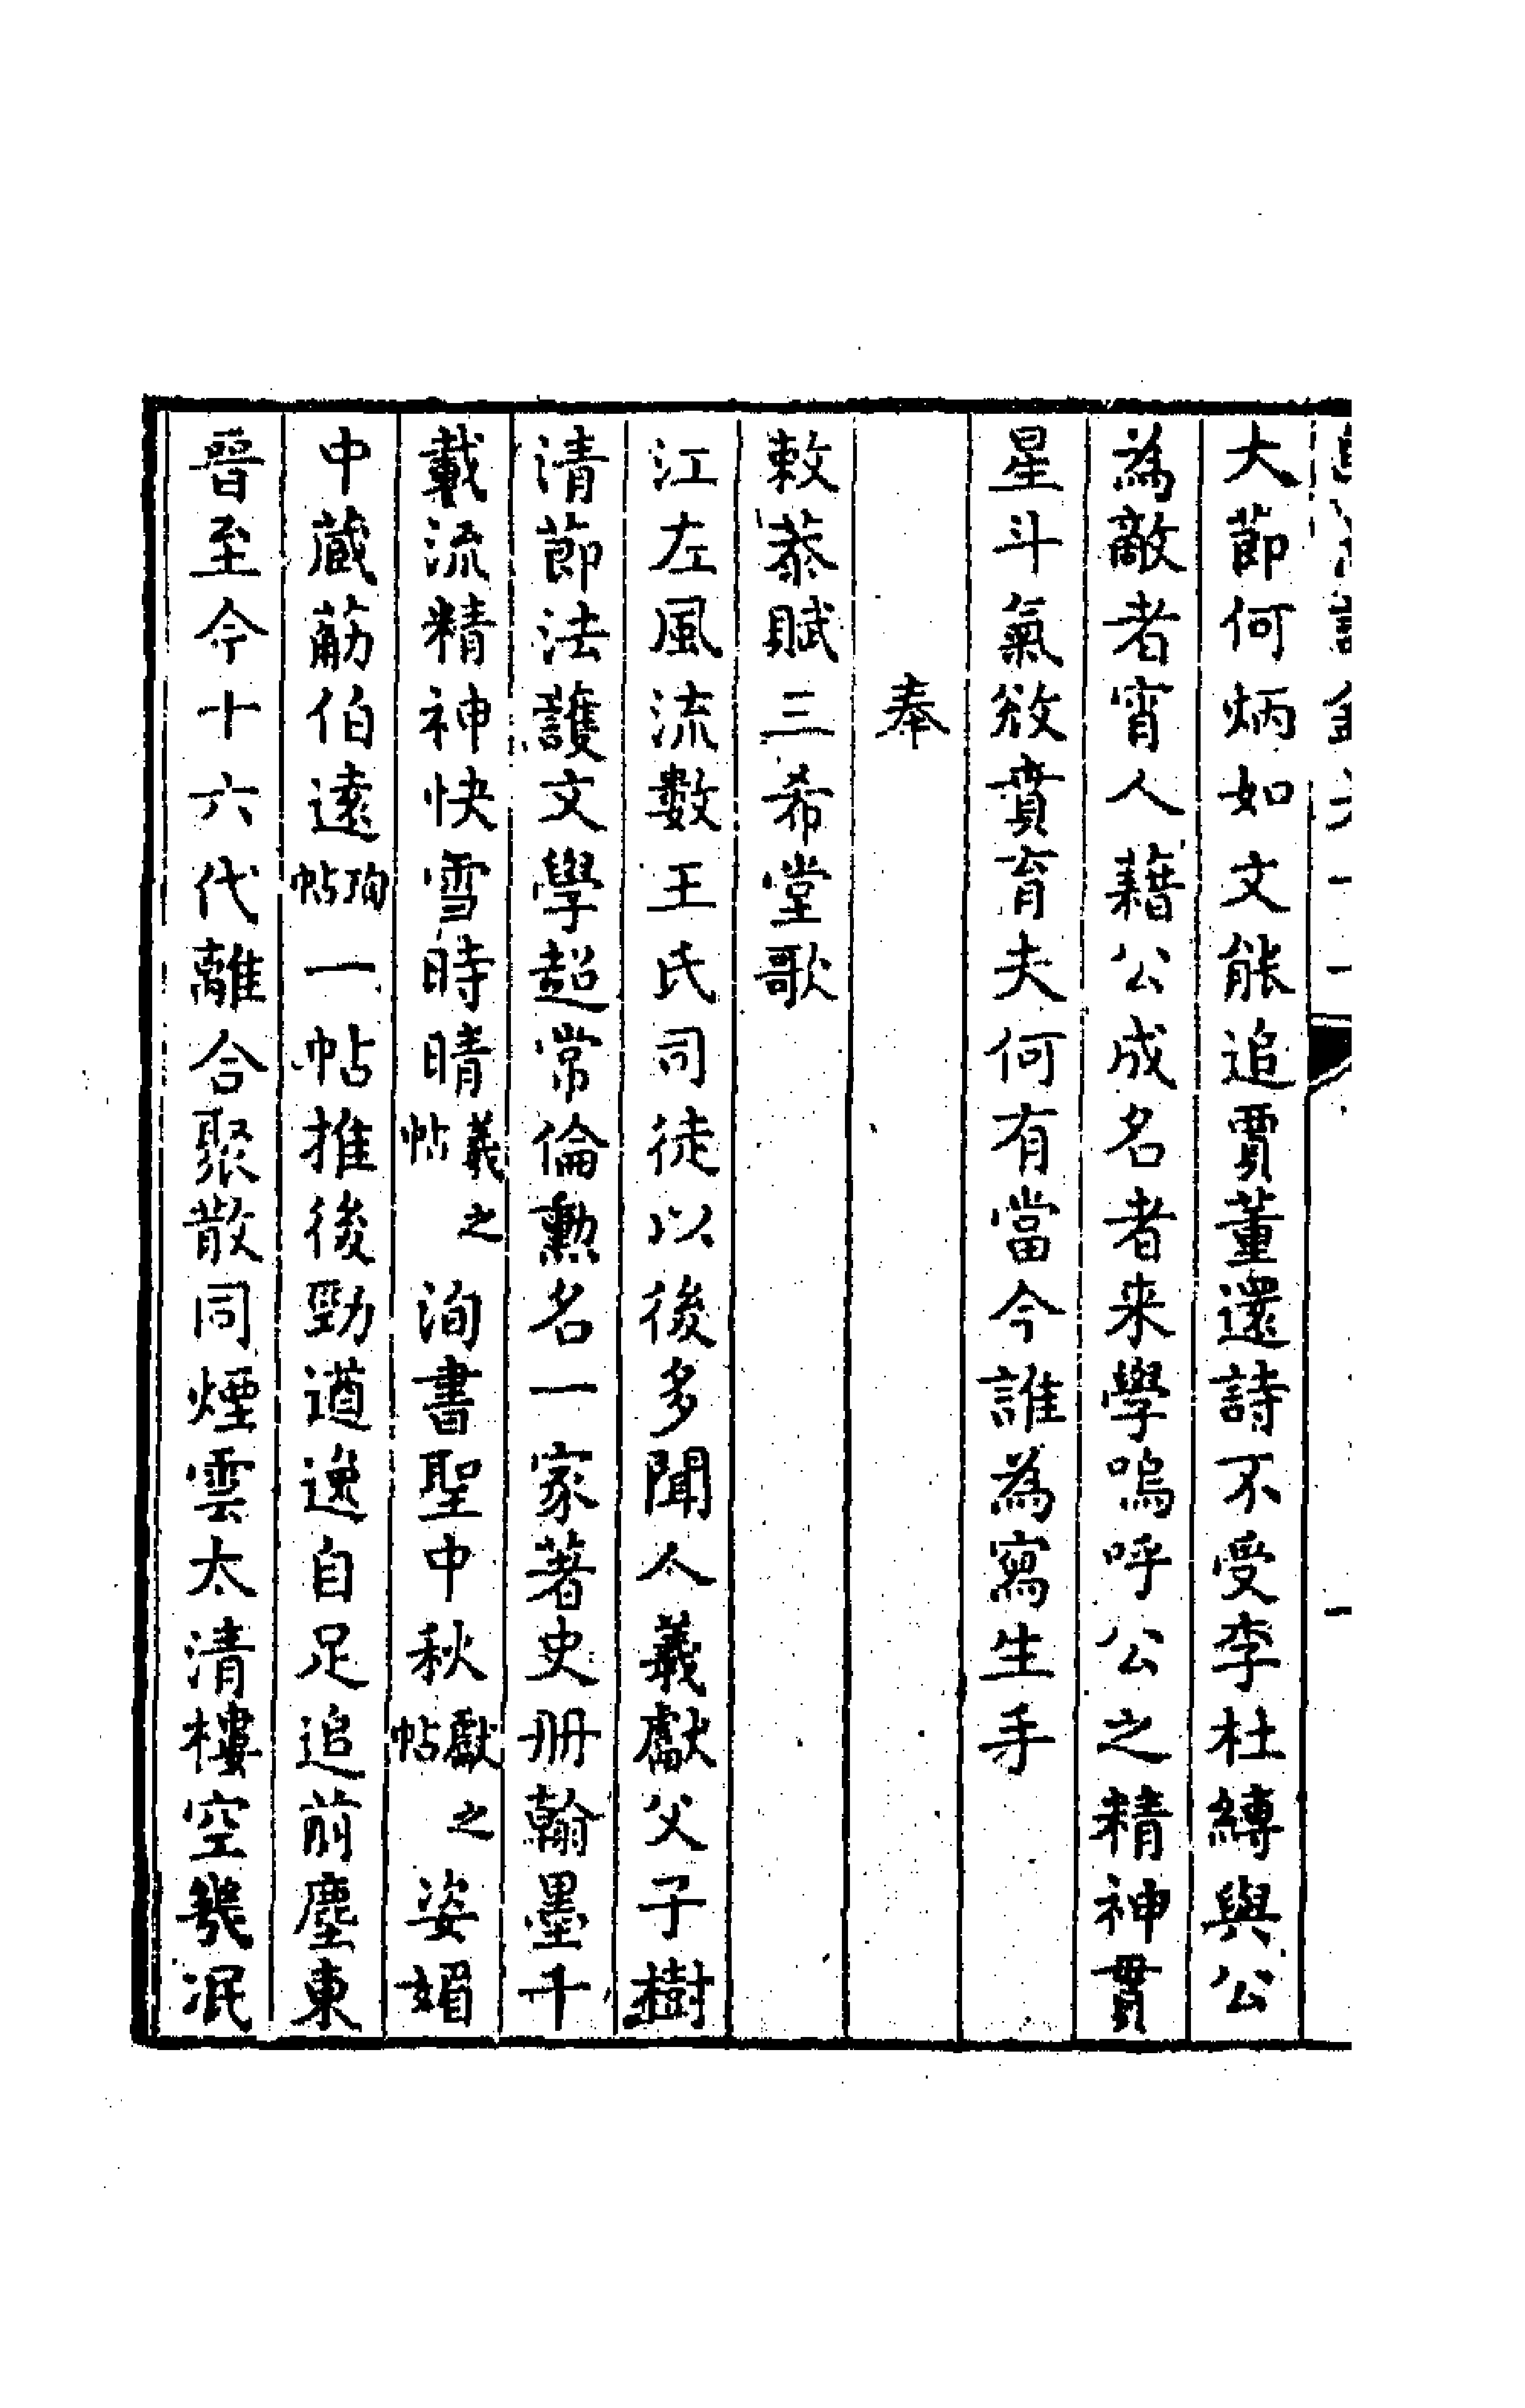 大節何炳如文能追賈董還詩不受李杜縛與公
為敵者宵人藉公成名者来學嗚呼公之精神貫
星斗氣欻賁育夫何有當今誰為寫生手
奉
敕恭賦三希堂歌
江左風流數王氏司徒以後多聞人羲獻父子樹
清節法護文學超常倫勲名一家著史册翰墨千
載流精神快雪時晴羲之帖洵書聖中秋獻之帖姿媚
中蔵觔伯遠珣帖一帖推後勁遒逸自足追前塵東
晉至今十六代離合聚散同煙雲太清樓空幾泯